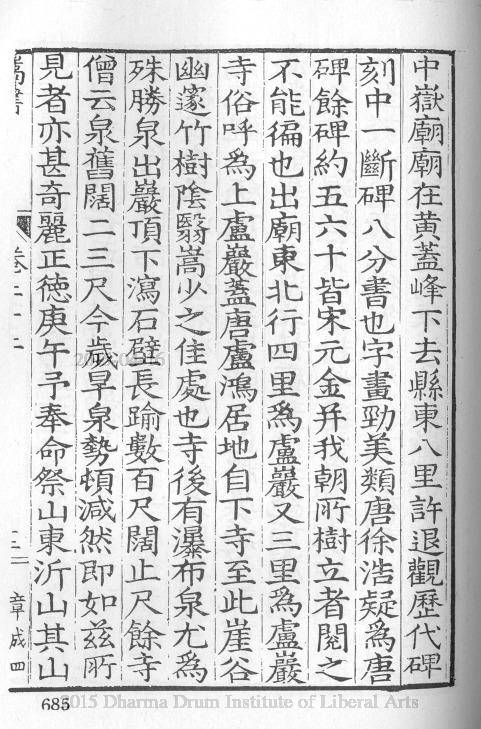 中嶽廟廟在黄蓋峰下去縣東八里許退觀歷代碑
刻中一斷碑八分書也字畫勁美類唐徐浩疑為唐
碑餘碑約五六十皆宋元金并我朝所樹立者閱之
不能徧也出廟東北行四里爲盧巖又三里爲盧巖
寺俗呼爲上盧巖蓋唐盧鴻居地自下寺至此崖谷
幽邃竹樹陰翳嵩少之佳處也寺後有瀑布泉尤爲
殊勝泉出巖頂下瀉石壁長踰數百尺闊止尺餘寺
僧云泉舊闊二三尺今歲旱泉勢頓減然即如兹所
見者亦甚奇麗正德庚午予奉命祭山東沂山其山
嵩書
卷二十二
章成四
685
2015 Dharma Drum Institute of Liberal Arts